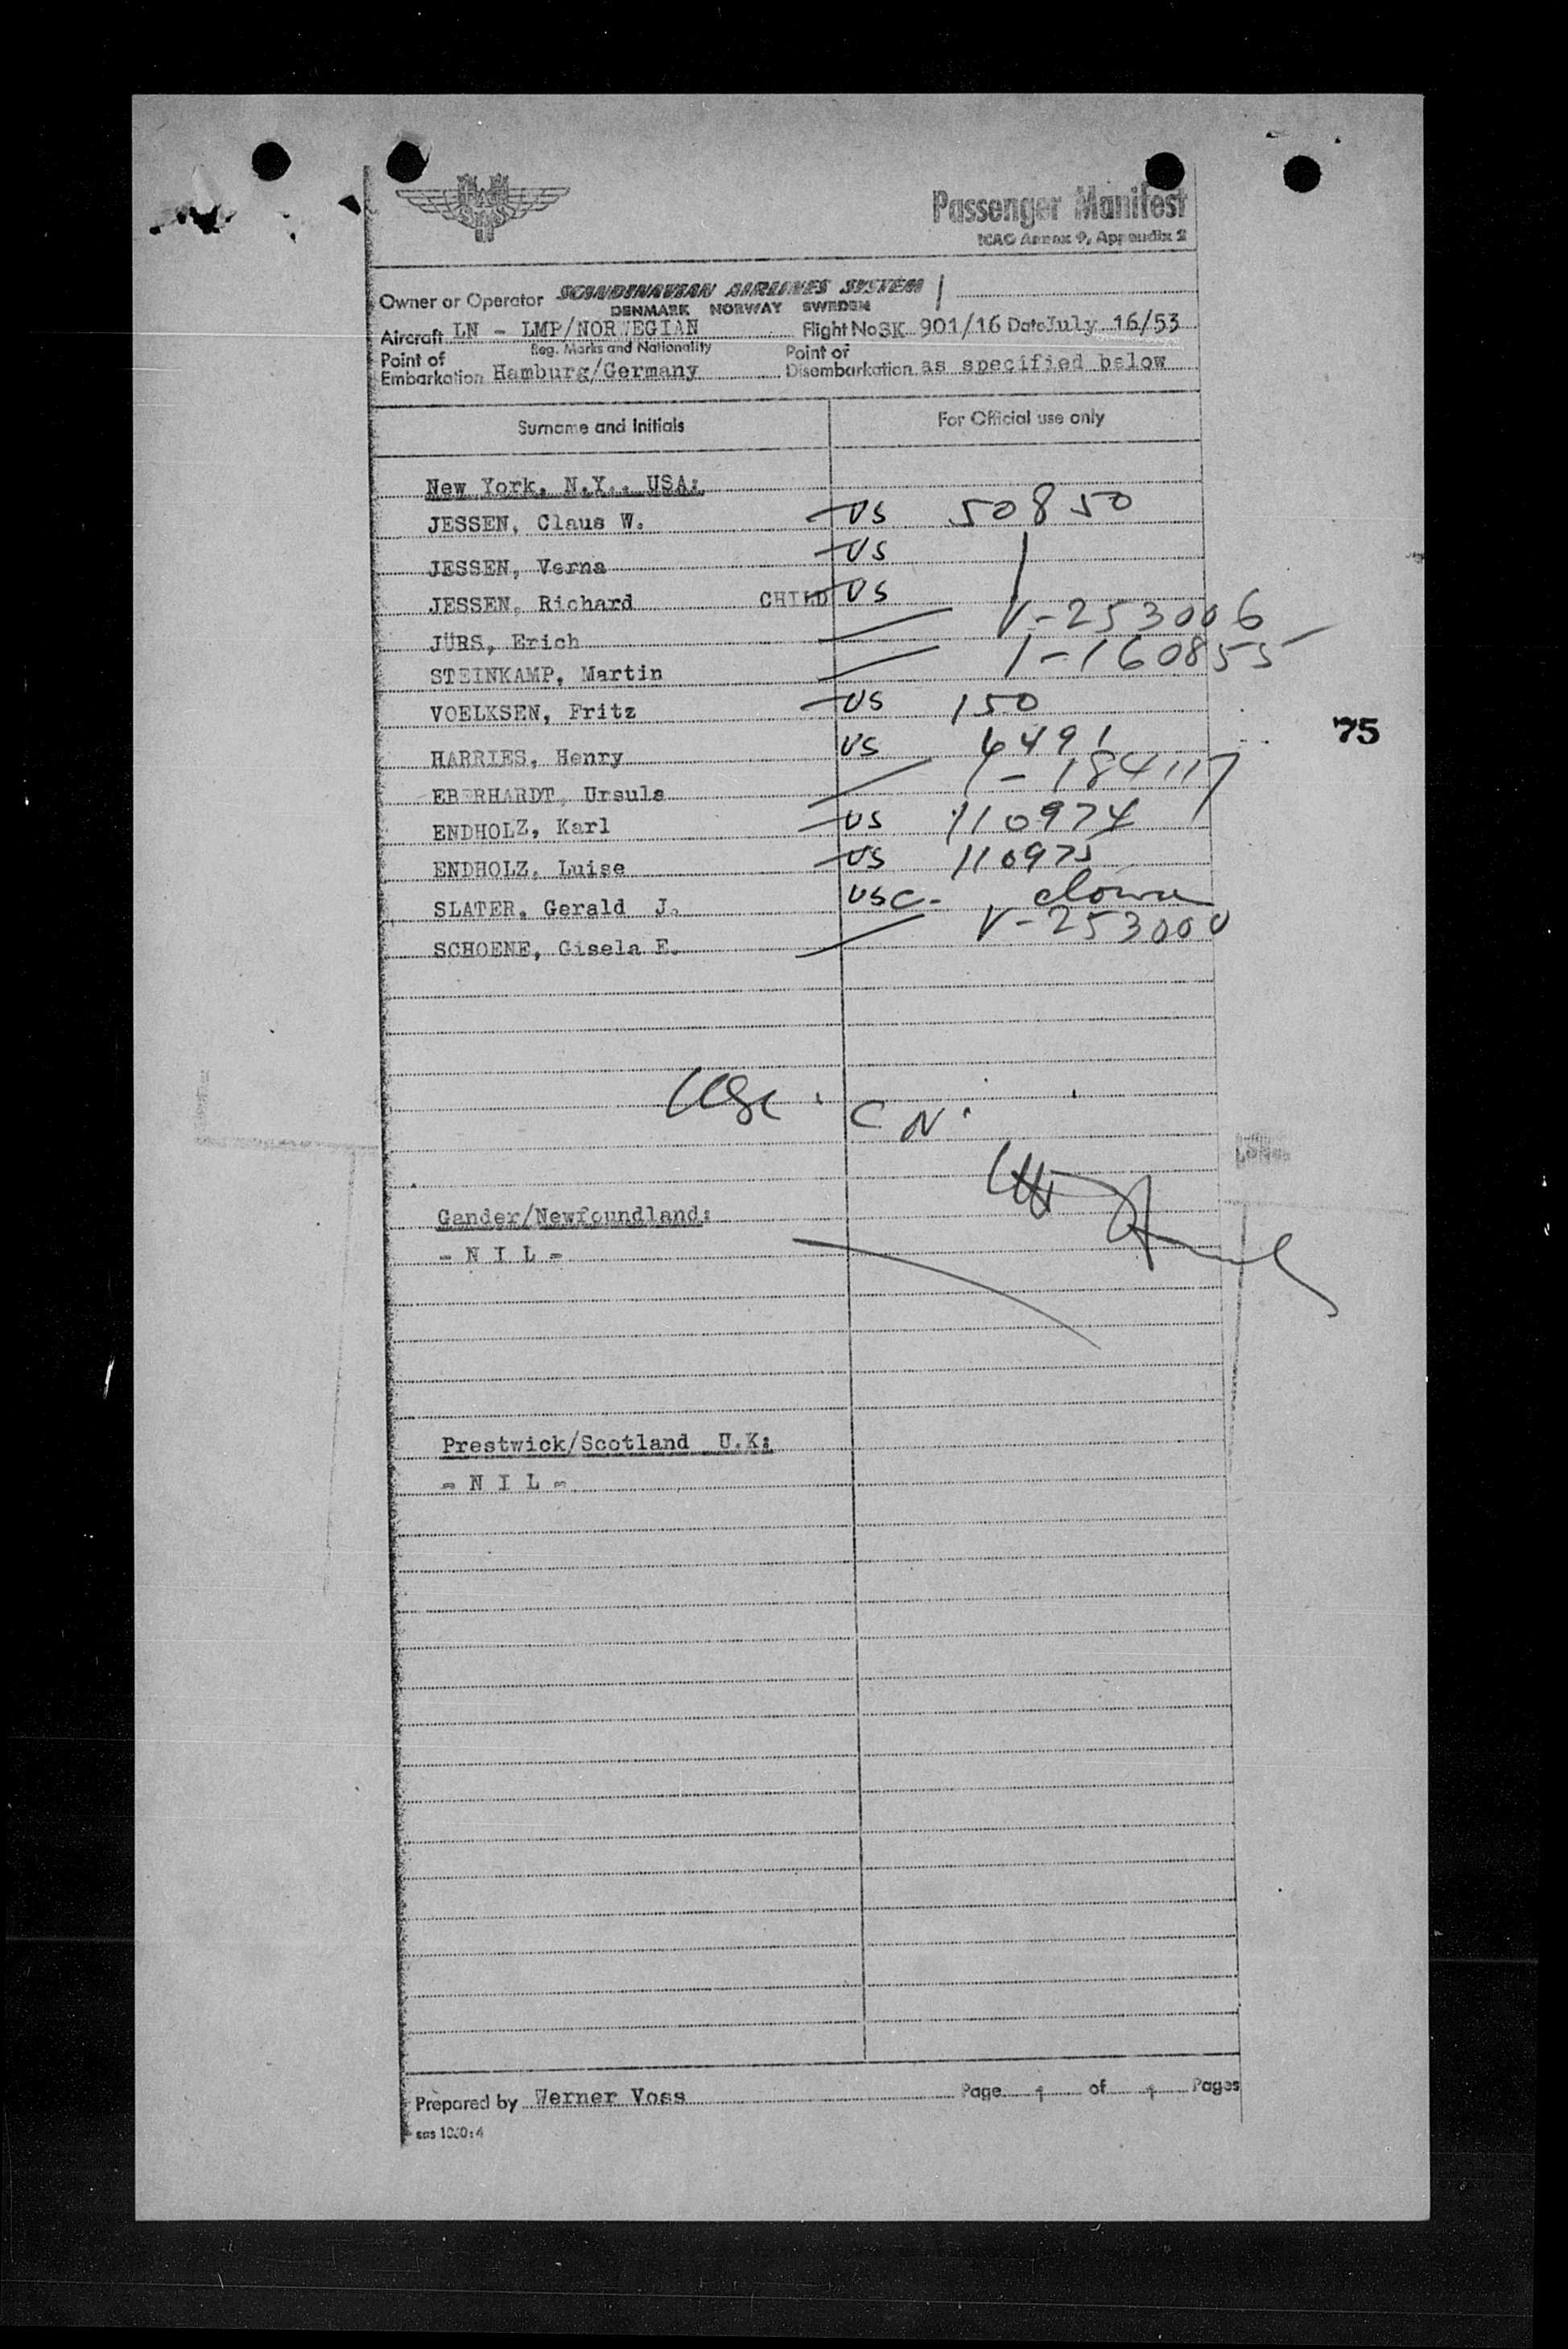 Passenger Manifest
ICAO Annex 9, Appendix 2
Owner or Operator SCANDINAVIAN AIRLINES SYSTEM
DENMARK NORWAY SWEDEN
Aircraft LN - LMP/NORWEGIAN Flight No SK 901/16 Date July 16/53
Reg. Marks and Nationality
Point of Embarkation Hamburg/Germany Point of Disembarkation as specified below
Surname and Initials For Official use only
New York, N.Y., USA:
JESSEN, Claus W. US 50850
JESSEN, Verna US
JESSEN, Richard CHILD US
JÜRS, Erich V-253006
STEINKAMP, Martin 1-160855
VOELKSEN, Fritz US 150
75
HARRIES, Henry US 6491
EBERHARDT, Ursula 1-184117
ENDHOLZ, Karl US 110974
ENDHOLZ, Luise US 110975
SLATER, Gerald J. USC-
SCHOENE, Gisela E. V-253000
C N.
Gander/Newfoundland:
- N I L -
Prestwick/Scotland U.K:
- N I L -
Prepared by Werner Voss Page 1 of 1 Pages